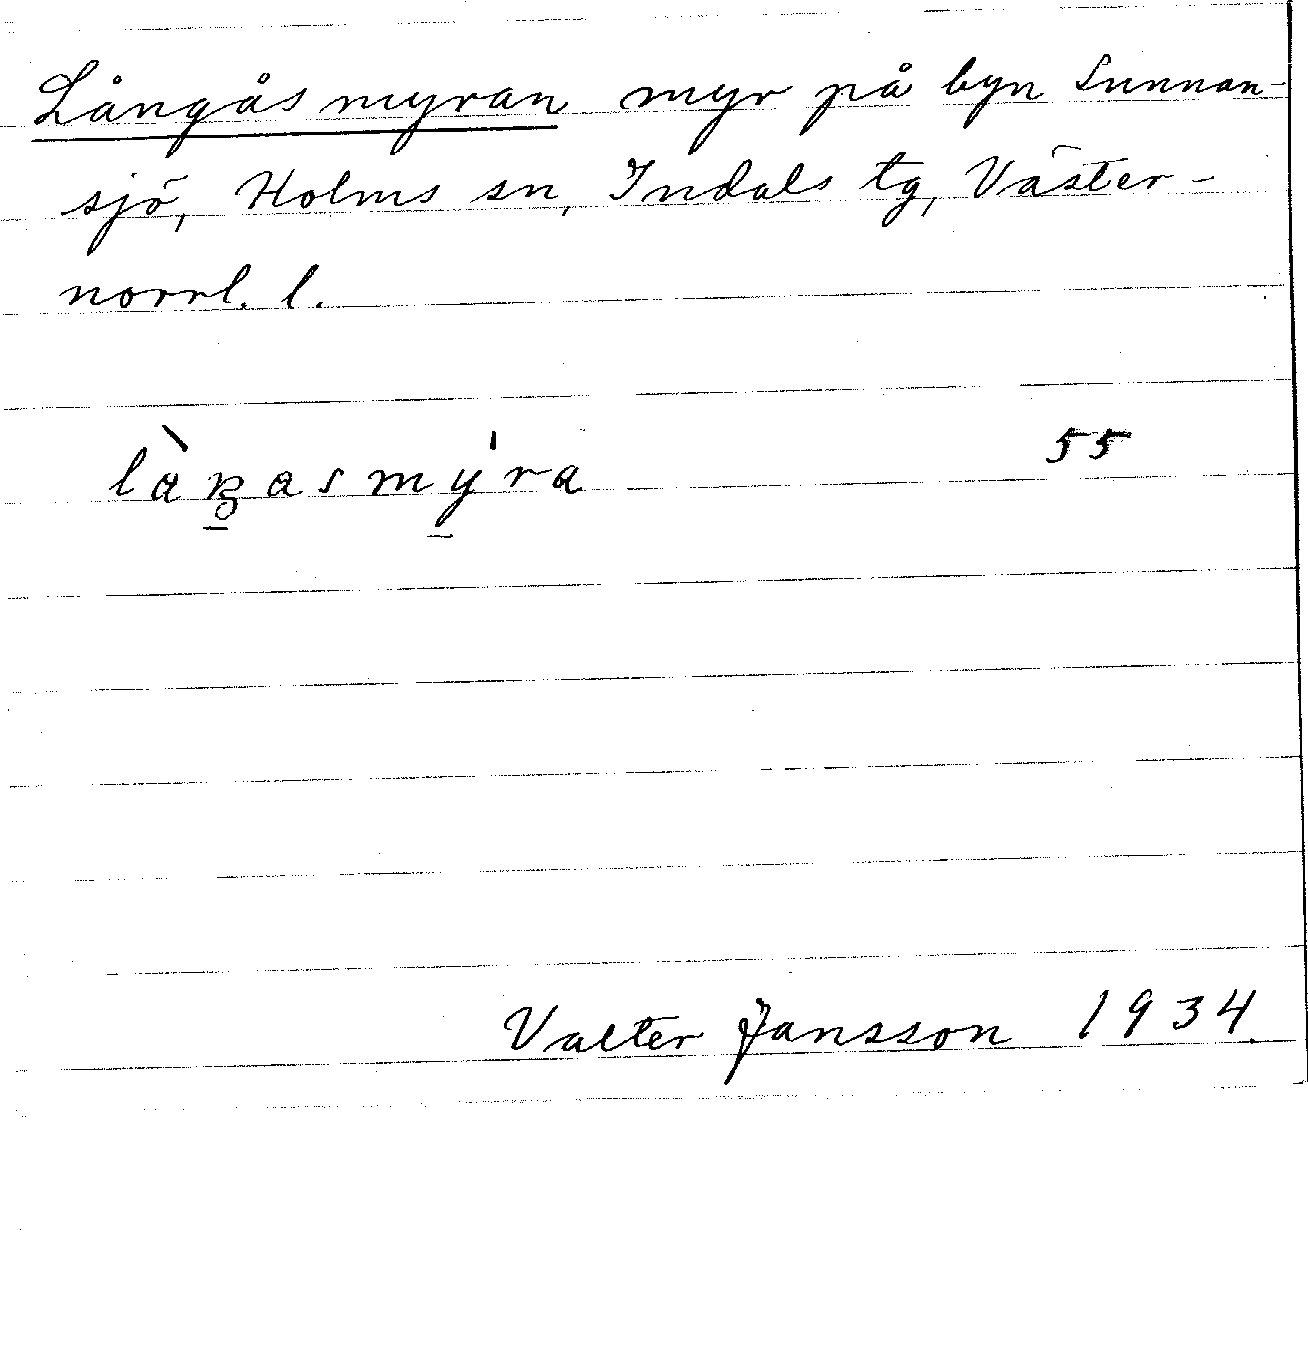 Långåsmyran myr på byn Sunnan-
sjö, Holms sn, Indals tg, Väster-
norrl. l.
55
Valter Jansson 1934.